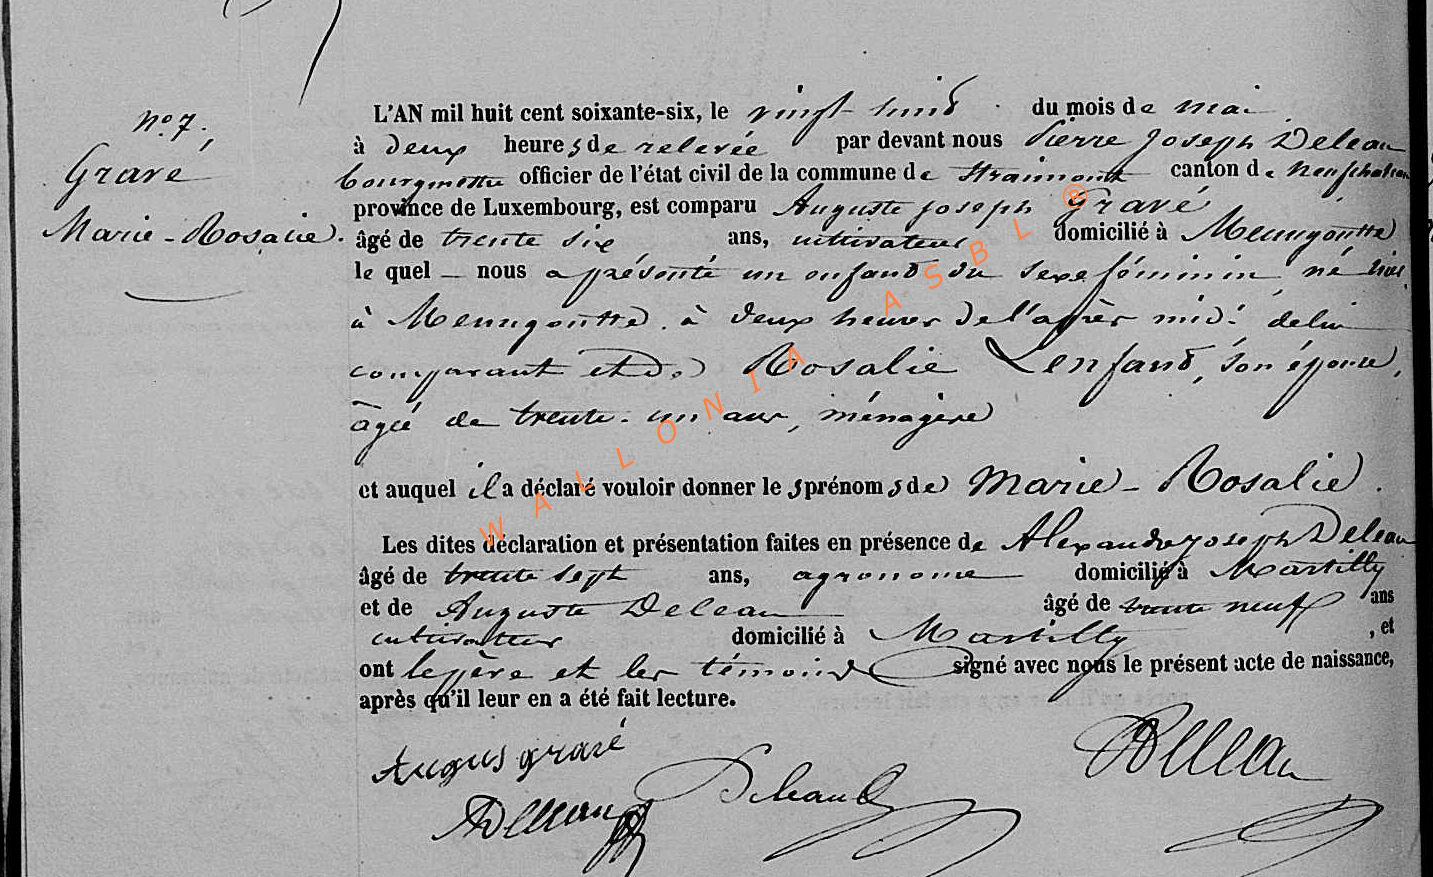 No. 7.
Gravé
Marie-Rosalie.
L'AN mil huit cent soixante-six, le vingt huit du mois de mai
à deux heures de relevée par devant nous Pierre Joseph Deleau
bourgmestre officier de l'état civil de la commune de Straimont canton de Neufchateau
province de Luxembourg, est comparu Auguste Joseph Gravé
âgé de trente six ans, cultivateur domicilié à Menugoutte
le quel — nous a présenté un enfant du sexe féminin, né hier
à Menugoutte à deux heures de l'après midi de lui
comparant et de Rosalie Lenfant, son épouse,
âgée de trente-un ans, ménagère
et auquel il a déclaré vouloir donner les prénoms de Marie-Rosalie.
Les dites déclaration et présentation faites en présence de Alexandre Joseph Deleau
âgé de trente sept ans, agronome domicilié à Martilly
et de Auguste Deleau âgé de trente neuf ans
cultivateur domicilié à Martilly, et
ont le père et les témoins signé avec nous le présent acte de naissance,
après qu'il leur en a été fait lecture.
August gravé
ADeleau Deleau Deleau
WALLONIA ASBL ®